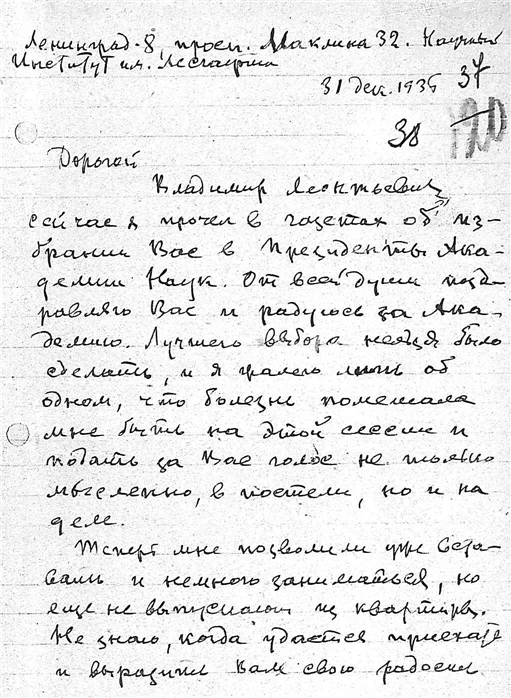 Ленинград-8, просп. Маклина 32. Научный
Институт им. Лесгафта
31 дек. 1936 37
38 120
Дорогой
Владимир Леонтьевич
сейчас я прочел в газетах об из-
брании Вас в Президенты Ака-
демии Наук. От всей души позд-
равляю Вас и радуюсь за Ака-
демию. Лучшего выбора нельзя было
сделать, и я жалею лишь об
одном, что болезнь помешала
мне быть на этой сессии и
подать за Вас голос не только
мысленно, в постели, но и на
деле.
Теперь мне позволили уже вста-
вать и немного заниматься, но
еще не выпускают из квартиры.
Не знаю, когда удастся приехать
и выразить Вам свою радость